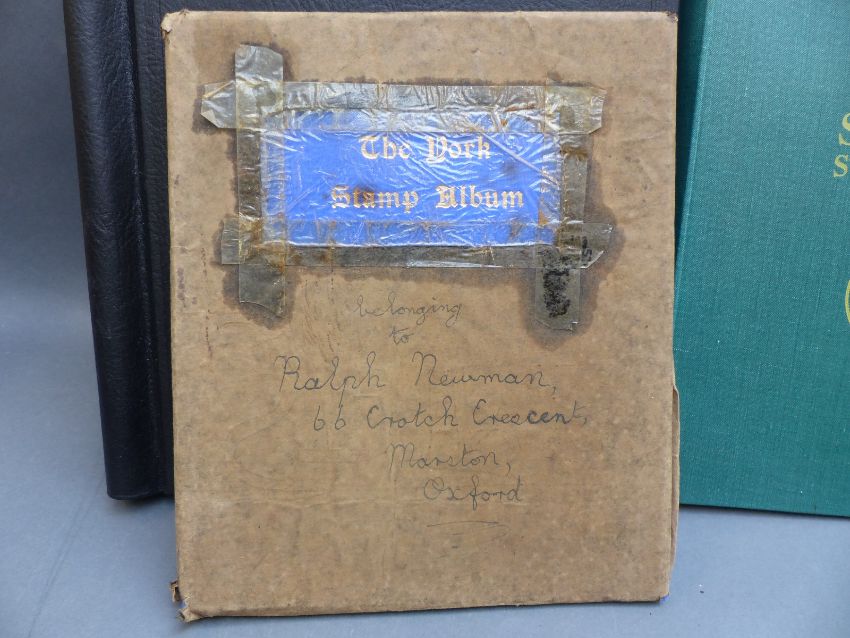 The York
Stamp Album
belonging
to
Ralph Newman,
66 Crotch Crescent,
Marston,
Oxford
S
S